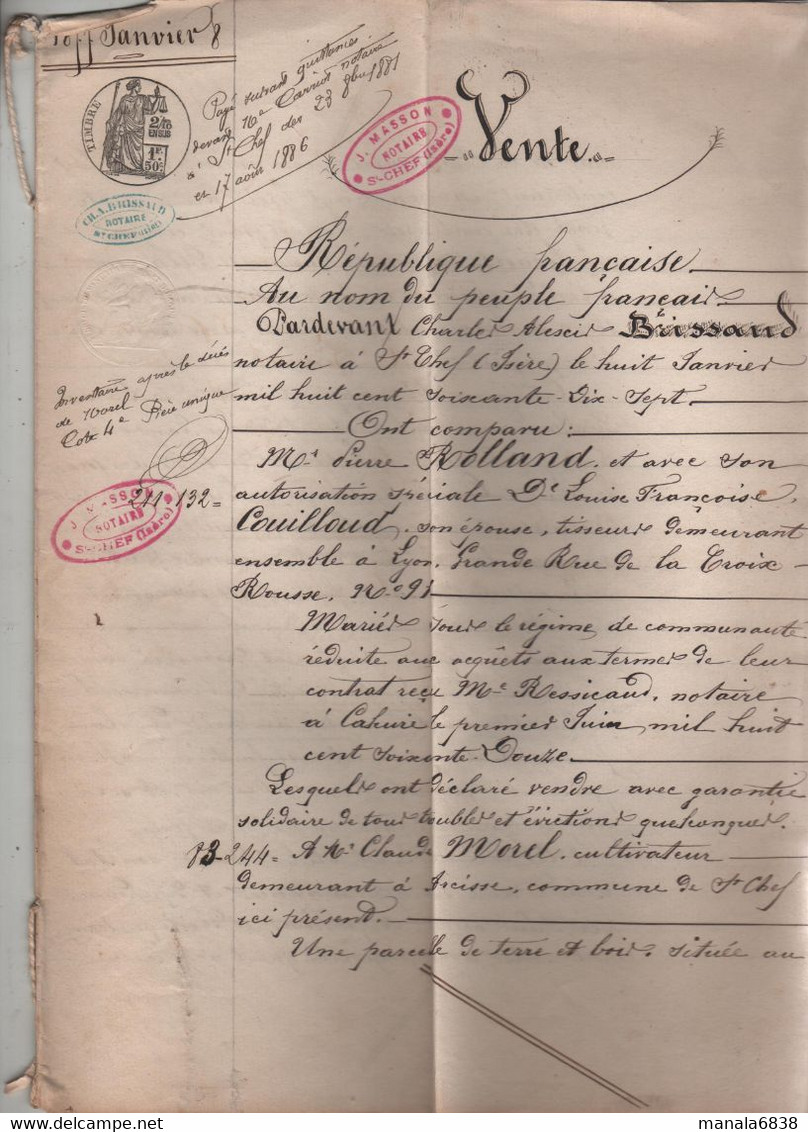 Janvier 8
TIMBRE
2/10
EN SUS
1F.
50c.
Payé suivant quittances
devant Me Carrier notaire
à St Chef des 23 8bre 1881
et 17 août 1886
J. MASSON
NOTAIRE
St-CHEF (Isère)
Vente
CH. A. BRISSAUD
NOTAIRE
St CHEF (Isère)
République française
Au nom du peuple français
Pardevant Charles Alexis Brissaud
notaire à St Chef (Isère) le huit Janvier
mil huit cent soixante-Dix-Sept
Inventaire après le décès
de Morel
Cote 4e Pièce unique
Ont comparu:
Mr Pierre Rolland, et avec son
J. MASSON
NOTAIRE
St-CHEF (Isère)
211-132=
autorisation spéciale De Louise Françoise
Couilloud, son épouse, tisseurs demeurant
ensemble à Lyon, Grande Rue de la Croix-
Rousse, No 91
Mariés sous le régime de communauté
réduite aux acquêts aux termes de leur
contrat reçu Me Ressicaud, notaire
à Caluire le premier Juin mil huit
cent soixante-Douze
Lesquels ont déclaré vendre avec garantie
solidaire de tous troubles et évictions quelconques.
83-244= A Mr Claude Morel, cultivateur
demeurant à Arcisse, commune de St Chef
ici présent.
Une parcelle de terre et bois, située au
manala6838